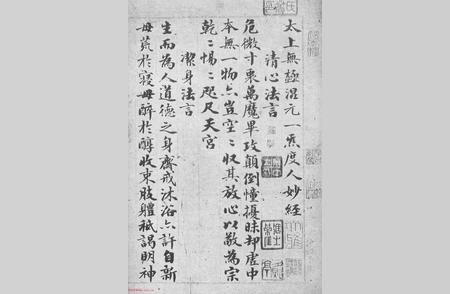 太上無極混元一炁度人妙經
清心法言
危微寸衷萬魔畢攻顛倒憧擾昧却虛中
本無一物亦豈空〻收其放心以敬為宗
乾〻惕〻咫尺天宮
潔身法言
生而為人道德之身齋戒沐浴亦許自新
毋荒於寢毋醉於醇收束肢體祗謁明神